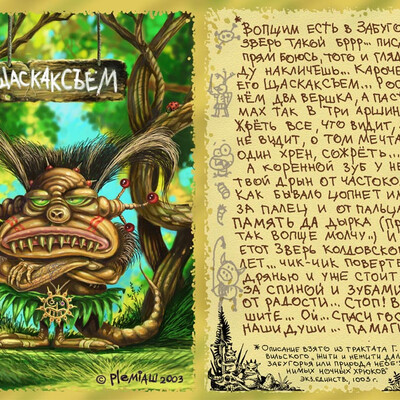 ЩАСКАКСЪЕМ
© PlemiaШ 2003
*ВОПЩИМ ЕСТЬ В ЗАБУГО
ЗВЕРЬ ТАКОЙ БРРР... ПИС
ПРЯМ БОЮСЬ, ТОГО И ГЛЯД
ДУ НАКЛИЧЕШЬ... КАРОЧЕ
ЕГО ЩАСКАКСЪЕМ... РОС
НЁМ ДВА ВЕРШКА, А ПАСТ
МАХ ТАК В ТРИ АРШИН
ЖРЁТЬ ВСЕ, ЧТО ВИДИТ,
НЕ ВИДИТ, О ТОМ МЕЧТА
ОДИН ХРЕН, СОЖРЁТЬ...
А КОРЕННОЙ ЗУБ У НЕ
ТВОЙ ДРЫН ОТ ЧАСТОКО
КАК БЫВАЛО ЦОПНЕТ ИМ
ЗА ПАЛЕЦ И ОТ ПАЛЬЦА
ПАМЯТЬ ДА ДЫРКА (ПР
ТАК ВОПЩЕ МОЛЧУ). И
ЕТОТ ЗВЕРЬ КОЛДОВСКО
ЛЕТ... ЧИК-ЧИК ПОВЕРТЕ
ДРЯНЬЮ И УЖЕ СТОИТ
ЗА СПИНОЙ И ЗУБАМИ
ОТ РАДОСТИ... СТОП! В
ШИТЕ... ОЙ... СПАСИ ГОС
НАШИ ДУШИ... ПАМАГИ
*ОПИСАНИЕ ВЗЯТО ИЗ ТРАКТАТА Г.
ВИЛЬСКОГО „ЖИТИ И НЕЖИТИ ДАЛ
ЗАБУГОРЬЯ ИЛИ ПРИРОДА НЕОБЪЯС
НИМЫХ НОЧНЫХ ХРЮКОВ"
ЭКЗ.ЕДИНСТВ., 1003 г.